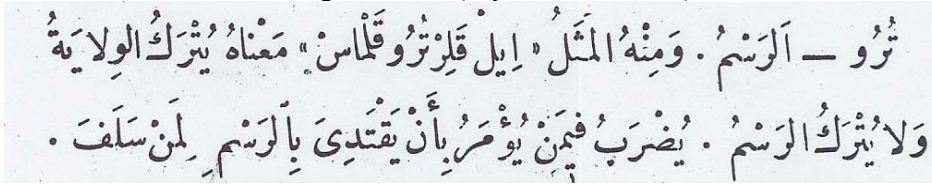 تُرُو — اَلرَسْمُ . وَمِنْهُ المَثَلُ « اِيلْ قَلِرْ تُرُو قَلْمَاسْ » مَعْنَاهُ يُتْرَكُ الوِلايَةُ
وَلا يُتْرَكُ الرَسْمُ . يُضْرَبُ فِيمَنْ يُؤْمَرُ بِأَنْ يَقْتَدِىَ بِالرَسْمِ لِمَنْ سَلَفَ .